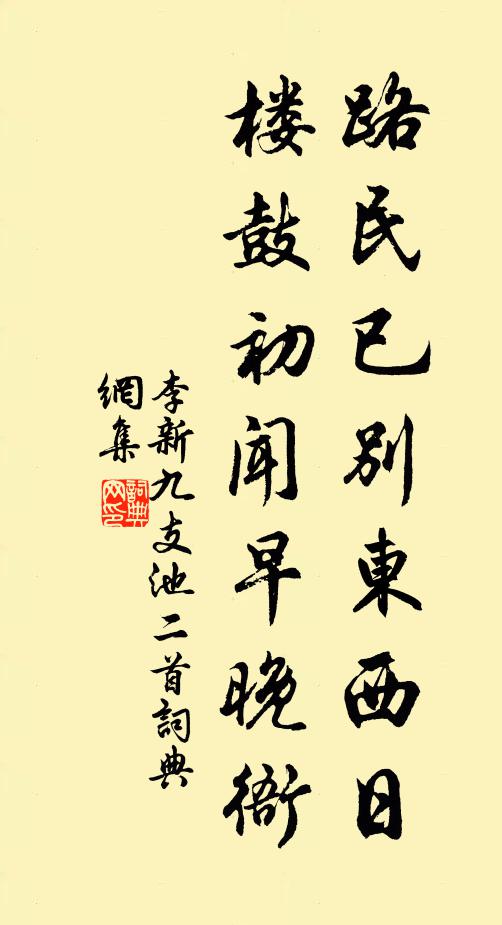 路民已别東西日
楼鼓初闻早晚衙
李新九支池二首詞典
網集
詞典網印